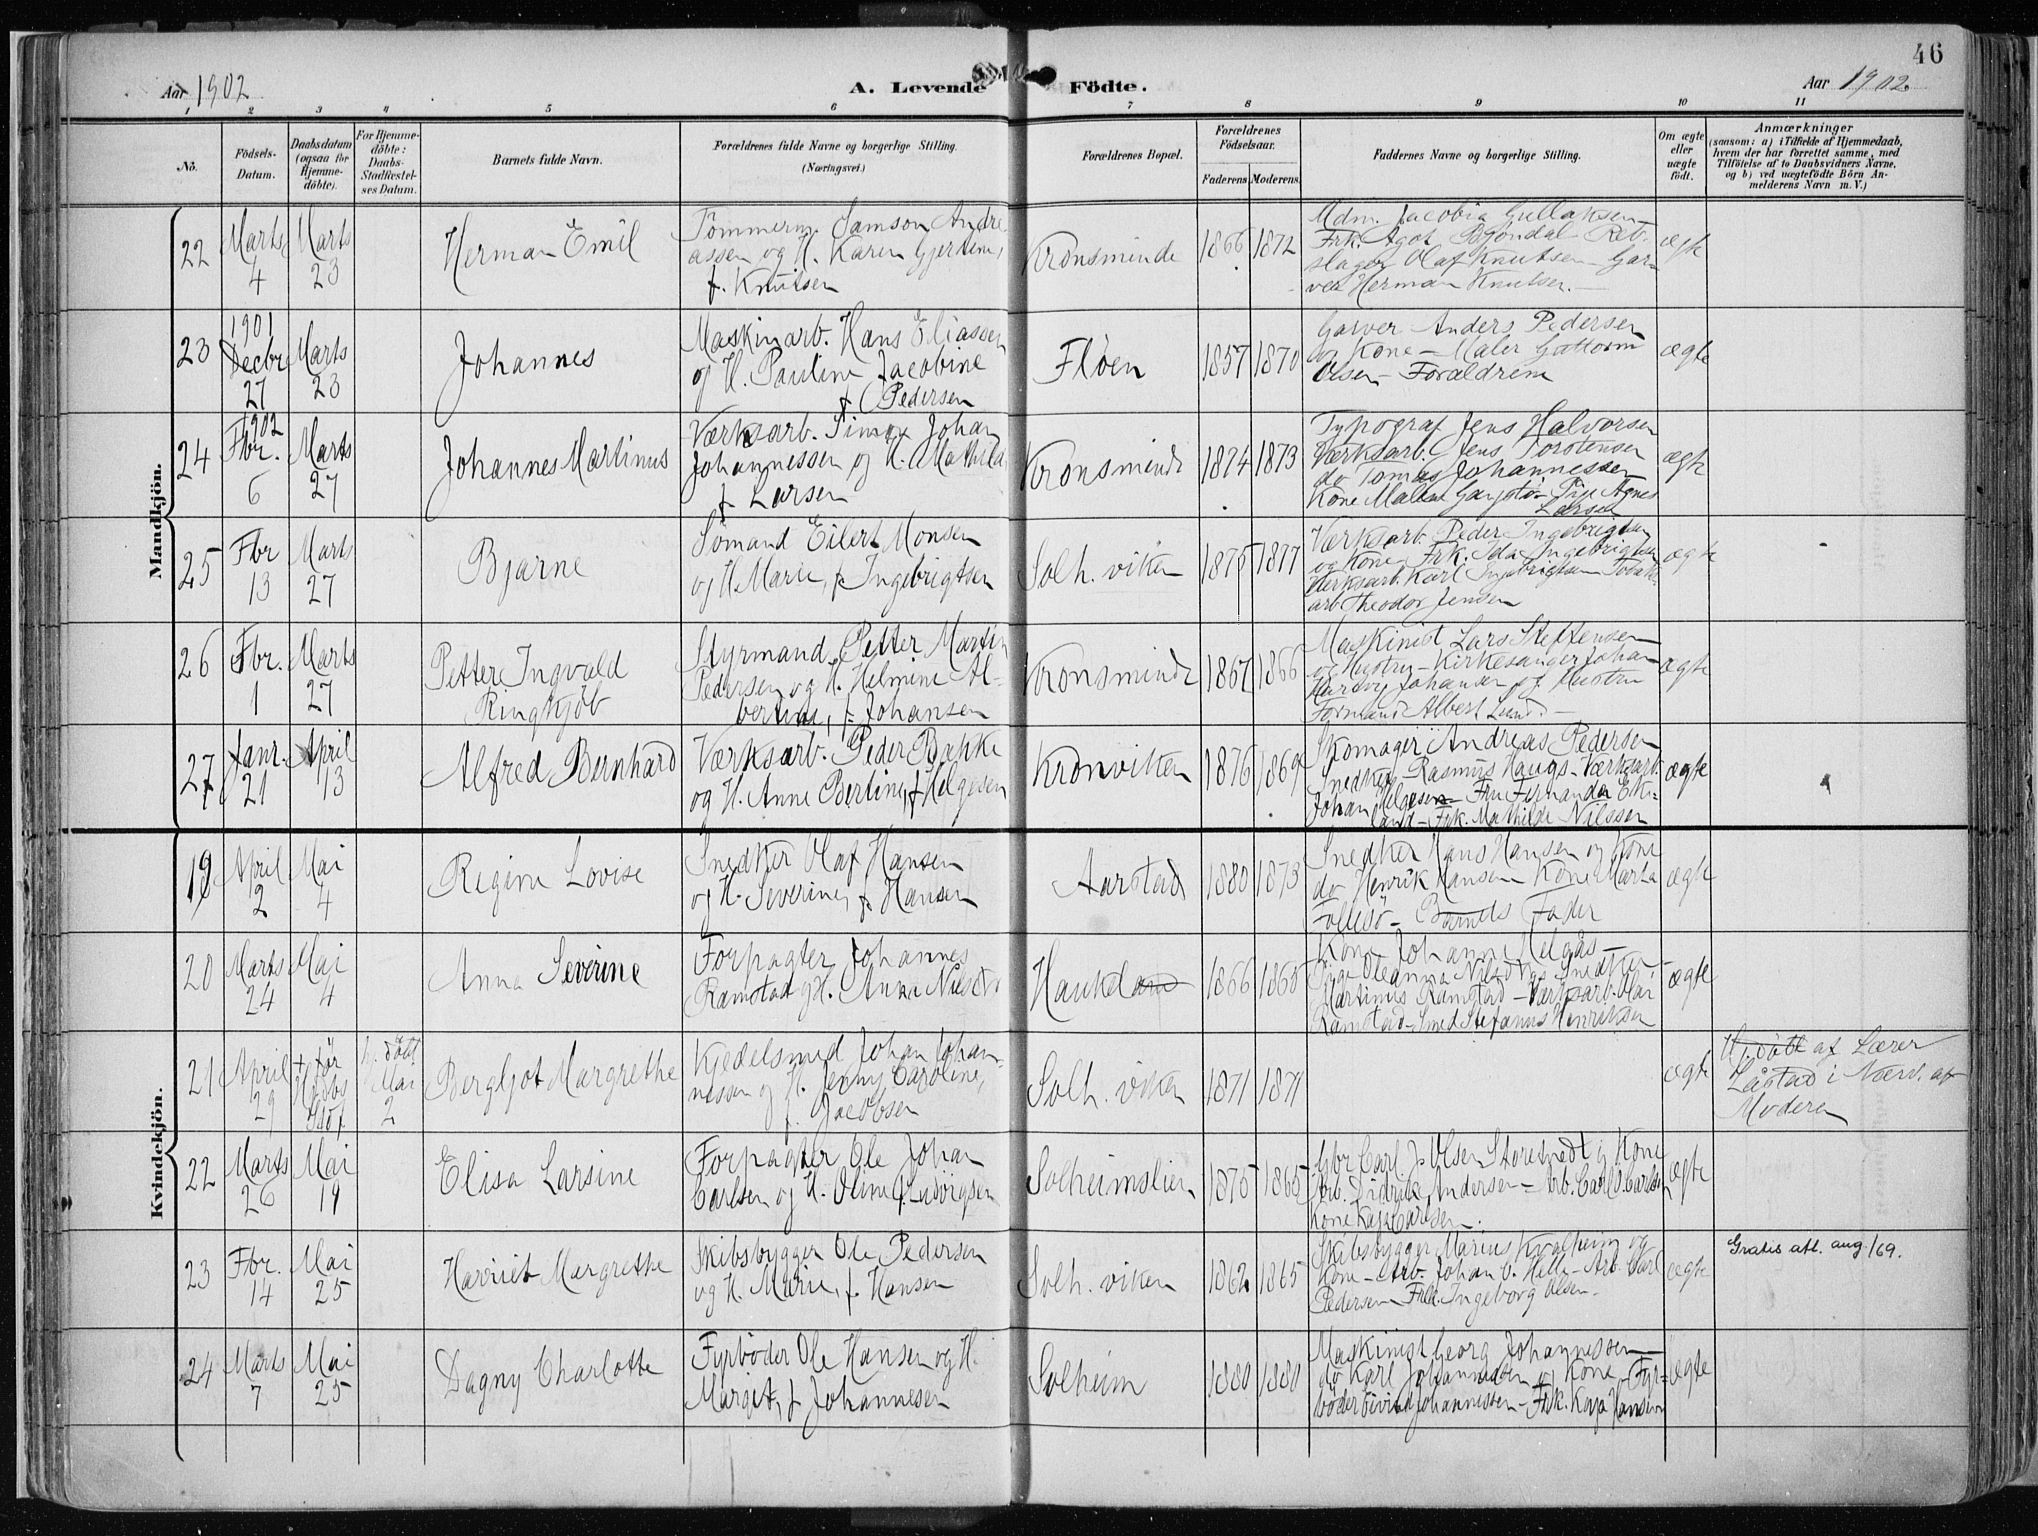 46
Aar 1902
A. Levende Födte.
Aar 1902.
1 2 3 4 5 6 7 8 9 10 11
No.
Födsels-
Datum.
Daabsdatum
(ogsaa for
Hjemme-
döbte).
For Hjemme-
döbte:
Daabs-
Stadfæstel-
ses Datum.
Barnets fulde Navn.
Forældrenes fulde Navne og borgerlige Stilling.
(Næringsvei.)
Forældrenes Bopæl.
Forældrenes
Födselsaar.
Faderens. Moderens.
Faddernes Navne og borgerlige Stilling.
Om ægte
eller
uægte
født.
Anmærkninger
(saasom: a) i Tilfælde af Hjemmedaab,
hvem der har forrettet samme, med
Tilföielse af to Daabsvidners Navne,
og b) ved uægtefödte Börn An-
melderens Navn m. V.)
Mandkjön.
22
Marts
4
Marts
23
Herman Emil
Tömmerm. Samson Andre
assen og H. Karen Gjertine,
f. Knutsen
Kronsminde
1866
1872
Mdm. Jacobia Gullaksen
Frk. Agot Bjöndal Reb-
slager Olaf Knutsen Gar-
ver Herman Knutsen.
ægte
23
1901
Decbr
27
Marts
23
Johannes
Maskinarb. Hans Eliassen
og H. Pauline Jacobine
f. Pedersen
Flöen
1857
1870
Garver Anders Pedersen
og Kone – Maler Guttorm
Olsen – Forældrene
ægte
24
1902
Fbr.
6
Marts
27
Johannes Martinus
Værksarb. Simon Johan
Johannessen og H. Mathilde
f. Larsen
Kronsminde
1874
1873
Typograf Jens Halvorsen
Værksarb. Jens Torstensen
do Tomas Johannessen
Kone Malen Pige Agnes
Larsen
ægte
25
Fbr
13
Marts
27
Bjarne
Sömand Eilert Monsen
og H. Marie, f. Ingebrigtsen
Solh. viken
1875
1877
Værksarb. Peder Ingebrigtsen
og Kone, Frk. Ida Ingebrigtsen
Værksarb. Karl Ingebrigtsen
arb Theodor Jensen
ægte
26
Fbr.
1
Marts
27
Petter Ingvald
Ringkjöb
Styrmand Petter Martin
Pedersen og H. Helmine Al-
bertine, f. Johansen
Kronsminde
1867
1866
Maskinist Lars Steffensen
og Hustru – Kirkesanger Johan
Johansen og Hustru
Formand Albert Lund –
ægte
27
Janr.
21
April
13
Alfred Bernhard
Værksarb. Peder Bakke
og H. Anne Bertine, f. Helgesen
Kronviken
1876
1869
Skomager Andreas Pedersen
Snedker Rasmus Haugs – Værksarb.
Johan Helgesen – Fru Fernanda Ek-
land – Frk. Mathilde Nilssen
ægte
Kvindekjön.
19
April
2
Mai
4
Regine Lovise
Snedker Olaf Hansen
og H. Severine, f. Hansen
Aarstad
1880
1873
Snedker Hans Hansen og Kone
do Henrik Hansen Kone Marta
Follesö – Barnets Fader
ægte
20
Marts
24
Mai
4
Anna Severine
Forpagter Johannes
Ramstad og H. Anna
Haukeland
1866
1865
Kone Johanne Melgås –
Pige Oleanna Snedker
Martinus Ramstad – Værksarb.
Ramstad – Smed Stefanus Henriksen
ægte
21
April
29
Mai
2
Bergljot Margrethe
Kjedelsmed Johan Johan-
nessen og H. Jenny Caroline,
f. Jacobsen
Solh. viken
1871
1871
ægte
Hj. döbt af Lærer
Låstad i Nærv. af
Moderen
22
Marts
26
Mai
19
Elisa Larsine
Forpagter Ole Johan
Carlsen og H. Oline f. Ludvigsen
Solheimslien
1875
1865
Gbr. Carl J. Olsen Storetvedt og Kone
Arb. Didrik Andersen – Arb. Carl O. Carlsen
Kone Kaja Carlsen.
ægte
23
Fbr.
14
Mai
25
Harriet Margrethe
Skibsbygger Ole Pedersen
og H. Marie, f. Hansen
Solh. viken
1862
1865
Skibsbygger Marius Kvalheim og
Kone – Arb. Johan C. Helle – Arb. Carl
Pedersen Frk. Ingeborg Olsen.
ægte
Gratis att. aug./69.
24
Marts
7
Mai
25
Dagny Charlotte
Fyrböder Ole Hansen og H.
Margit, f. Johannesen
Solheim
1880
1880
Maskinist Georg Johannessen
do Karl Johannessen og Kone – Fyr-
böder Johannessen – Frk. Kaja Hansen
ægte